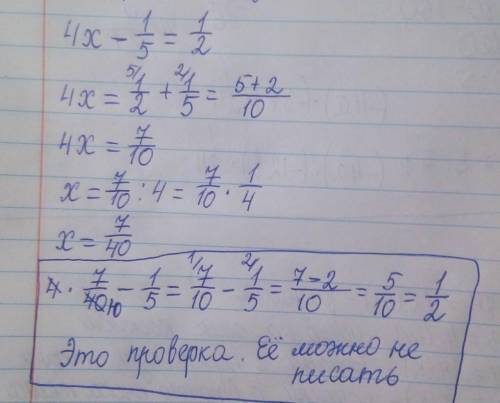 4x - 1/5 = 1/2
4x = ⁵⁾1/2 + ²⁾1/5 = (5+2)/10
4x = 7/10
x = 7/10 : 4 = 7/10 · 1/4
x = 7/40
4 · 7/40 10 - 1/5 = ¹⁾7/10 - ²⁾1/5 = (7-2)/10 = 5/10 = 1/2
Это проверка. Её можно не
писать